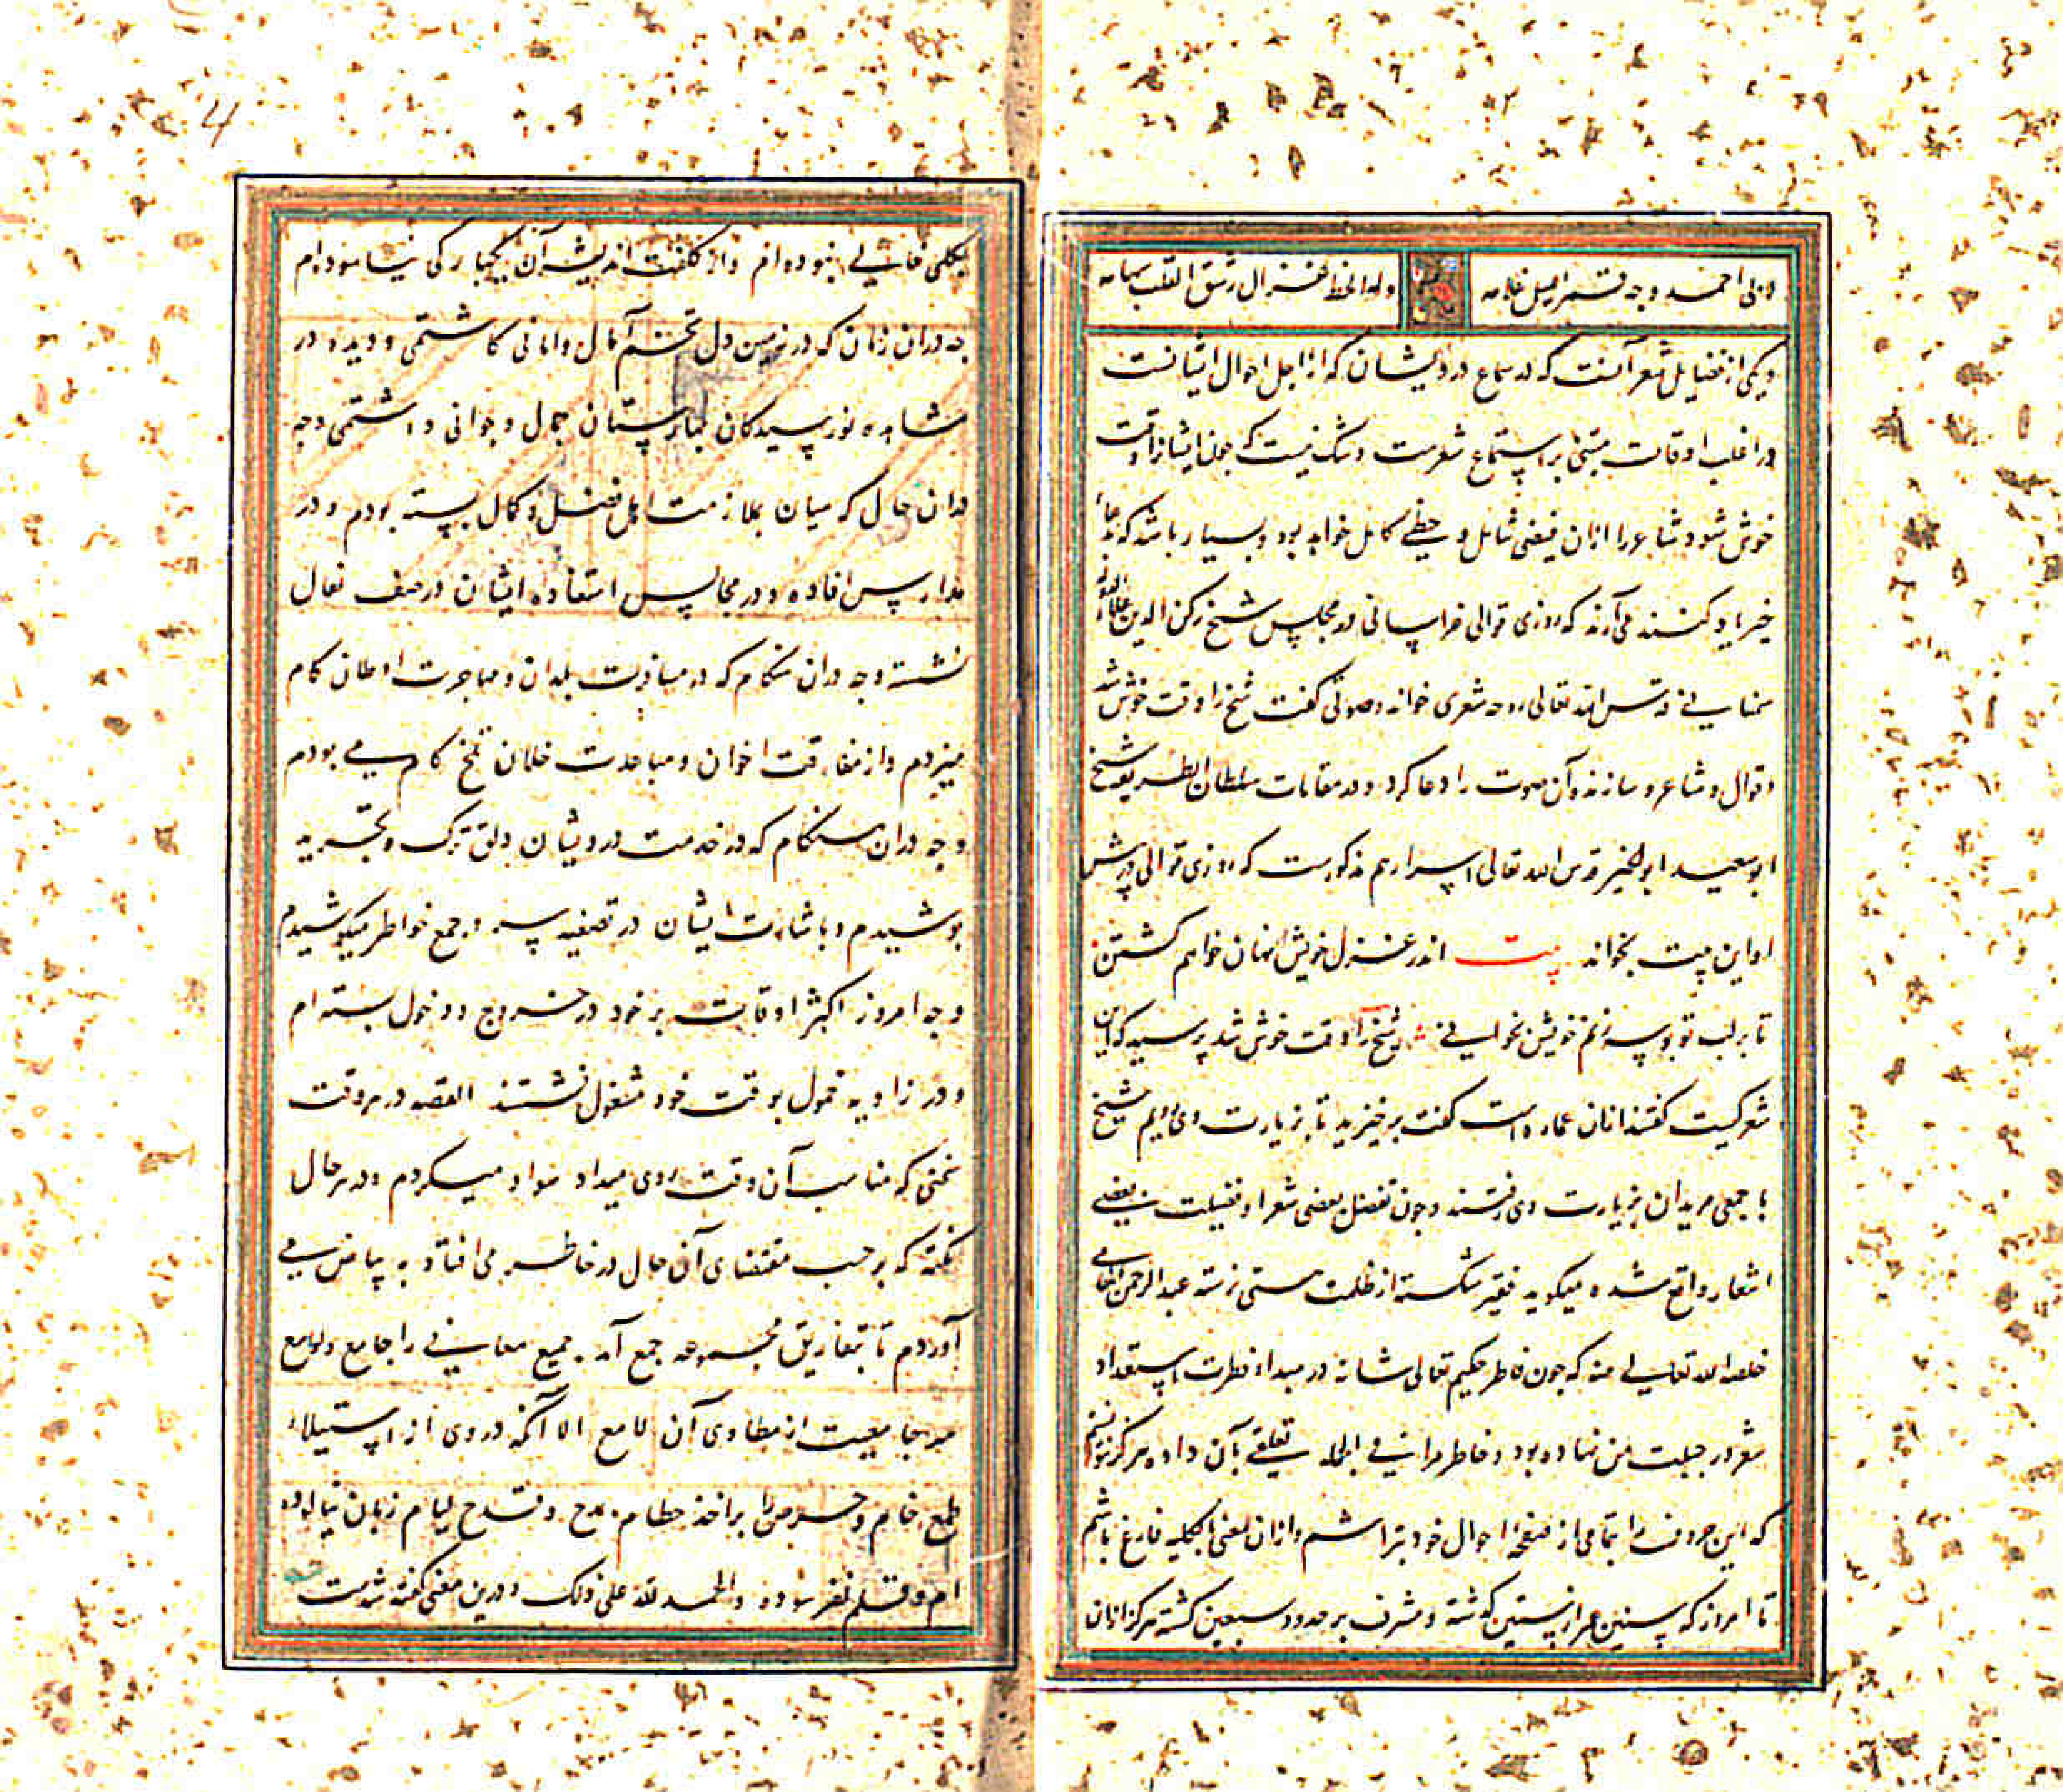 وله لحظ غزال رشق القلب سهامه
و یکی از فضایل شعر آنست که در سماع درویشان که از اجل احوال ایشانست
در اغلب اوقات مبتنی بر استماع شعرست و شک نیست که چون ایشانرا وقت
خوش شود شاعر را ازان فیضی شامل و حظی کامل خواهد بود و بسیار باشد که بدعای
خیر یاد کنند می آرند که روزی قوالی خراسانی در مجلس شیخ رکن الدین علاء الدوله
سمنانی قدس الله تعالی روحه شعری خواند و صوتی گفت شیخ را وقت خوش شد
و قوال و شاعر و سازنده آن صوت را دعا کرد و در مقامات سلطان الطریقه شیخ
ابو سعید ابو الخیر قدس الله تعالی اسرارهم مذکورست که روزی قوالی در پیش
او این بیت بخواند بیت اندر غزل خویش نهان خواهم گشتن
تا بر لب تو بوسه زنم چونش بخوانی شیخ را وقت خوش شد پرسید که این
شعر کیست گفتند ازان عماره است گفت برخیزید تا بزیارت وی رویم شیخ
با جمعی مریدان بزیارت وی رفتند و چون تفضل بعضی شعرا و فضیلت بعضی
اشعار واقع شد میگوید فقیر شکسته از ظلمت هستی نرسته عبد الرحمن الجامی
خلصه الله تعالی منه که چون فاطر حکیم تعالی شانه در مبداء فطرت استعداد
شعر در جبلت من نهاده بود و خاطر مرا فی الجمله تعلقی بآن داده هرگز نتوانستم
که این حروف را بتمامی از صفحه احوال خود بتراشم و ازان معنی بالکلیه فارغ باشم
تا امروز که سنین عمر از ستین گذشته و مشرف بر حدود سبعین گشته هرگز ازان
بکلی خالی نبوده ام و از کلفت اندیشه آن بیکبارگی نیاسوده ام
چه دران زمان که در زمین دل تخم آمال و امانی کاشتمی و دیده در
مشاهده نورسیدگان بهارستان جمال و جوانی داشتمی و چه
دران حال که میان بملازمت اهل فضل و کمال بسته بودم و در
مدارس افاده و در مجالس استفاده ایشان در صف نعال
نشسته و چه دران هنگام که در مسافرت بلدان و مهاجرت اوطان گام
میزدم و از مفارقت اخوان و مباعدت خلان تلخ کام می بودم
و چه دران هنگام که در خدمت درویشان دلق ترک و تجرید
پوشیدم و باشارت ایشان در تصفیه سر و جمع خاطر میکوشیدم
و چه امروز که اکثر اوقات بر خود در خروج و دخول بسته ام
و در زاویه خمول بوقت خود مشغول نشسته القصه در هر وقت
سخنی که مناسب آن وقت روی میداد سواد میکردم و در هر حال
نکته که بر حسب مقتضای آن حال در خاطر می افتاد به بیاض می
آوردم تا بتفاریق مجموعه جمع آمد جمیع معانی را جامع و لوامع
سر جامعیت از مطاوی آن لامع الا آنکه در وی از استیلاء
طمع خام و حرص را بر اخذ حطام مدح و قدح لیام زبان نیالوده
ام و قلم نفرسوده و الحمد لله علی ذلک و درین معنی گفته شدست